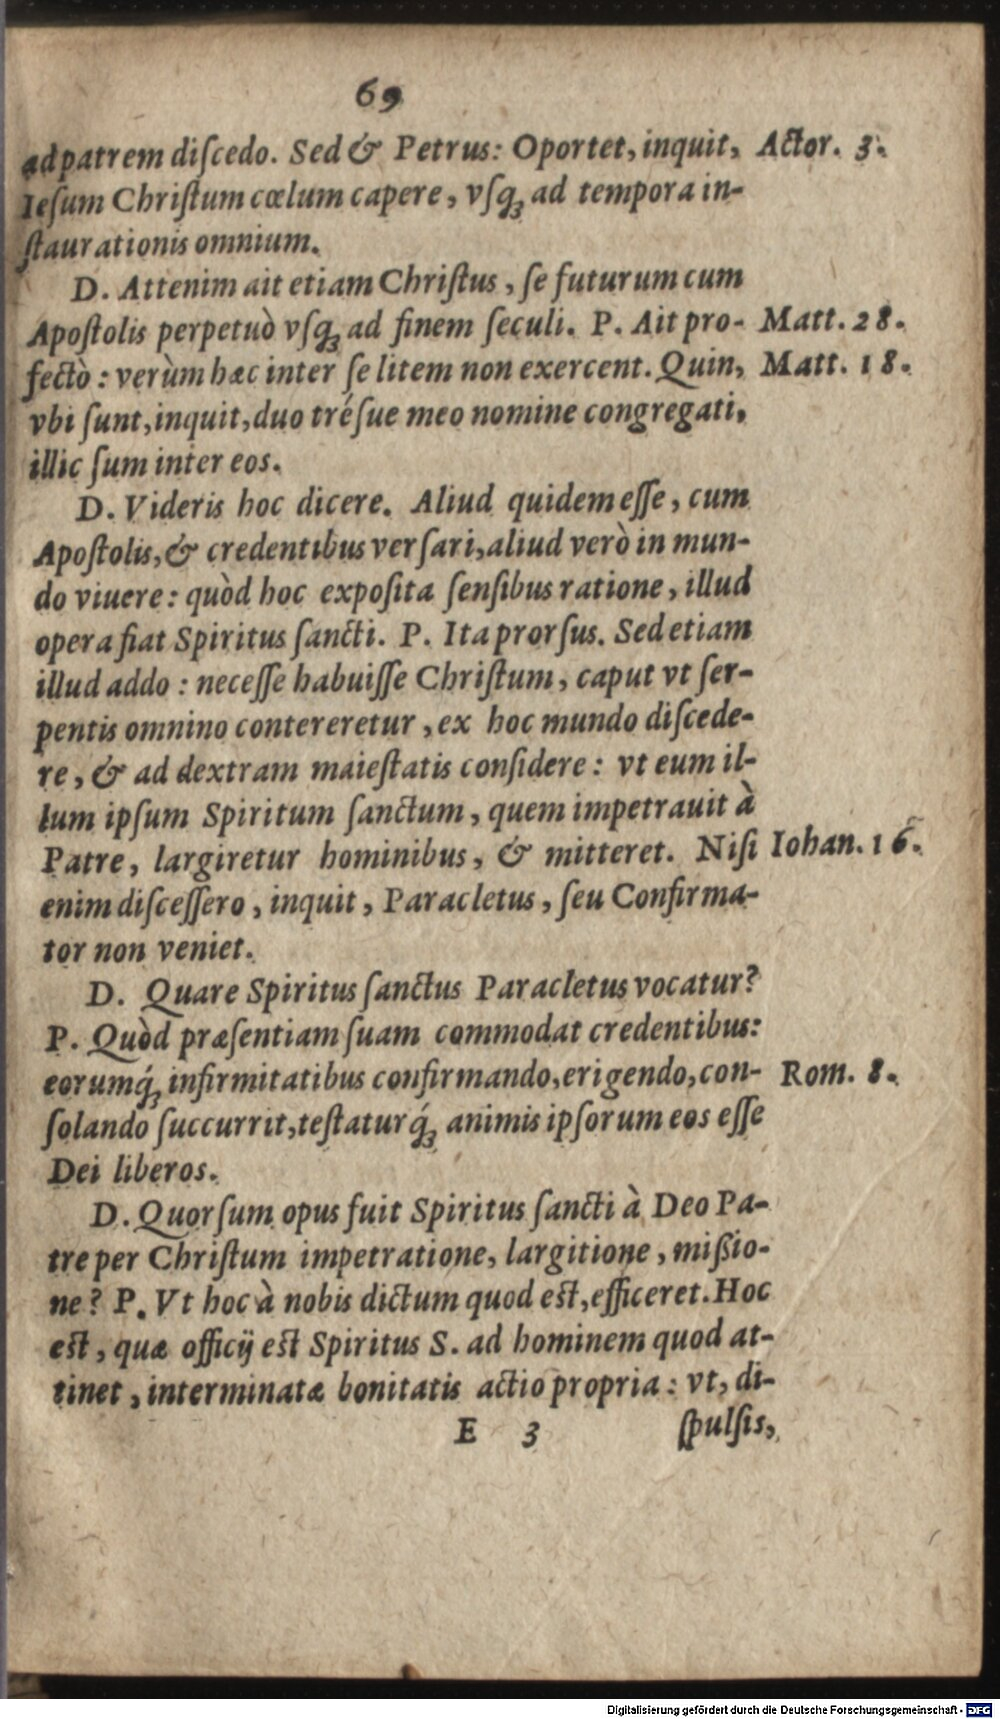 69
ad patrem discedo. Sed & Petrus: Oportet, inquit, Actor. 3.
Iesum Christum cœlum capere, vsq; ad tempora in-
staurationis omnium.
D. Attenim ait etiam Christus, se futurum cum
Apostolis perpetuò vsq; ad finem seculi. P. Ait pro- Matt. 28.
fectò: verùm hæc inter se litem non exercent. Quin, Matt. 18.
vbi sunt, inquit, duo trésue meo nomine congregati,
illic sum inter eos.
D. Videris hoc dicere. Aliud quidem esse, cum
Apostolis, & credentibus versari, aliud verò in mun-
do viuere: quòd hoc exposita sensibus ratione, illud
opera fiat Spiritus sancti. P. Ita prorsus. Sed etiam
illud addo: necesse habuisse Christum, caput vt ser-
pentis omnino contereretur, ex hoc mundo discede-
re, & ad dextram maiestatis considere: vt eum il-
lum ipsum Spiritum sanctum, quem impetrauit à
Patre, largiretur hominibus, & mitteret. Nisi Iohan. 16.
enim discessero, inquit, Paracletus, seu Confirma-
tor non veniet.
D. Quare Spiritus sanctus Paracletus vocatur?
P. Quòd præsentiam suam commodat credentibus:
eorumq́; infirmitatibus confirmando, erigendo, con- Rom. 8.
solando succurrit, testaturq́; animis ipsorum eos esse
Dei liberos.
D. Quorsum opus fuit Spiritus sancti à Deo Pa-
tre per Christum impetratione, largitione, mißio-
ne? P. Vt hoc à nobis dictum quod est, efficeret. Hoc
est, quæ officij est Spiritus S. ad hominem quod at-
tinet, interminatæ bonitatis actio propria: vt, di-
E 3 spulsis,
Digitalisierung gefördert durch die Deutsche Forschungsgemeinschaft - DFG